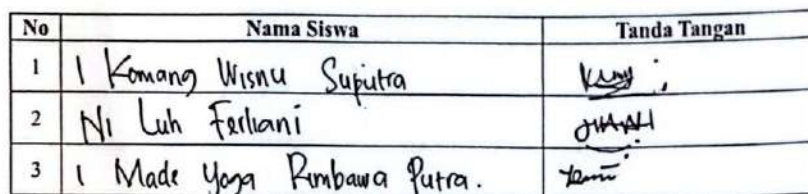 No Nama Siswa Tanda Tangan
1 I Komang Wisnu Suputra
2 Ni Luh Ferliani
3 I Made Yoga Rimbawa Putra.